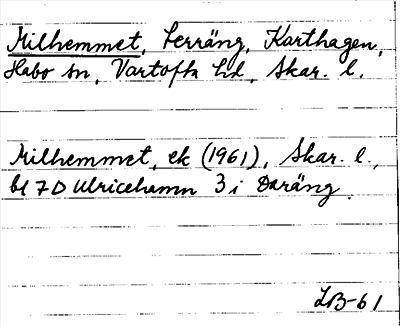 Milhemmet, Lerräng, Karthagen,
Habo sn, Vartofta hd, Skar. l.
Milhemmet, ek (1961), Skar. l.,
bl 7D Ulricehamn 3 i Daräng.
LB-61